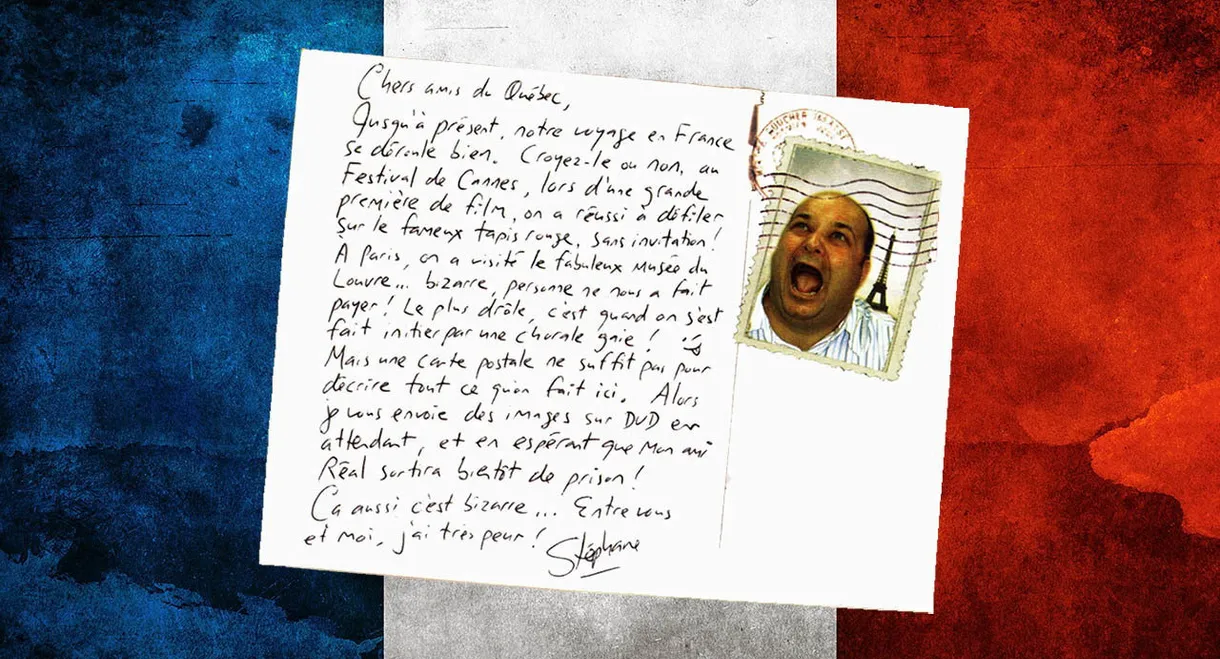 Chers amis du Québec,
Jusqu'à présent, notre voyage en France
se déroule bien. Croyez-le ou non, au
Festival de Cannes, lors d'une grande
première de film, on a réussi à défiler
sur le fameux tapis rouge, sans invitation!
À Paris, on a visité le fabuleux musée du
Louvre... bizarre, personne ne nous a fait
payer! Le plus drôle, c'est quand on s'est
fait initier par une chorale gaie!
Mais une carte postale ne suffit pas pour
décrire tout ce qu'on fait ici. Alors
je vous envoie des images sur DVD en
attendant, et en espérant que mon ami
Réal sortira bientôt de prison!
Ça aussi c'est bizarre... Entre vous
et moi, j'ai très peur!
Stéphane